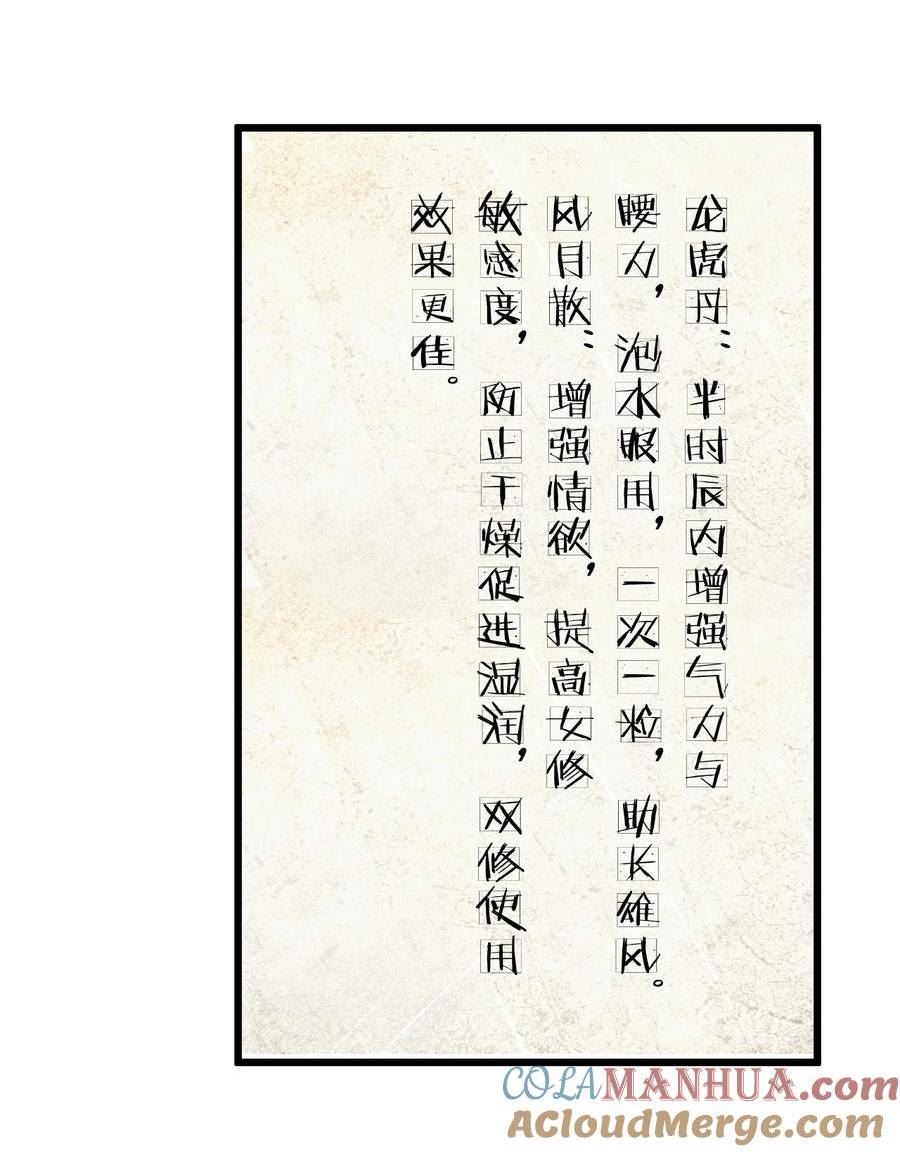 龙虎丹：半时辰内增强气力与
腰力，泡水服用，一次一粒，助长雄风。
风月散：增强情欲，提高女修
敏感度，防止干燥促进温润，双修使用
效果更佳。
COLAMANHUA.com
ACloudMerge.com